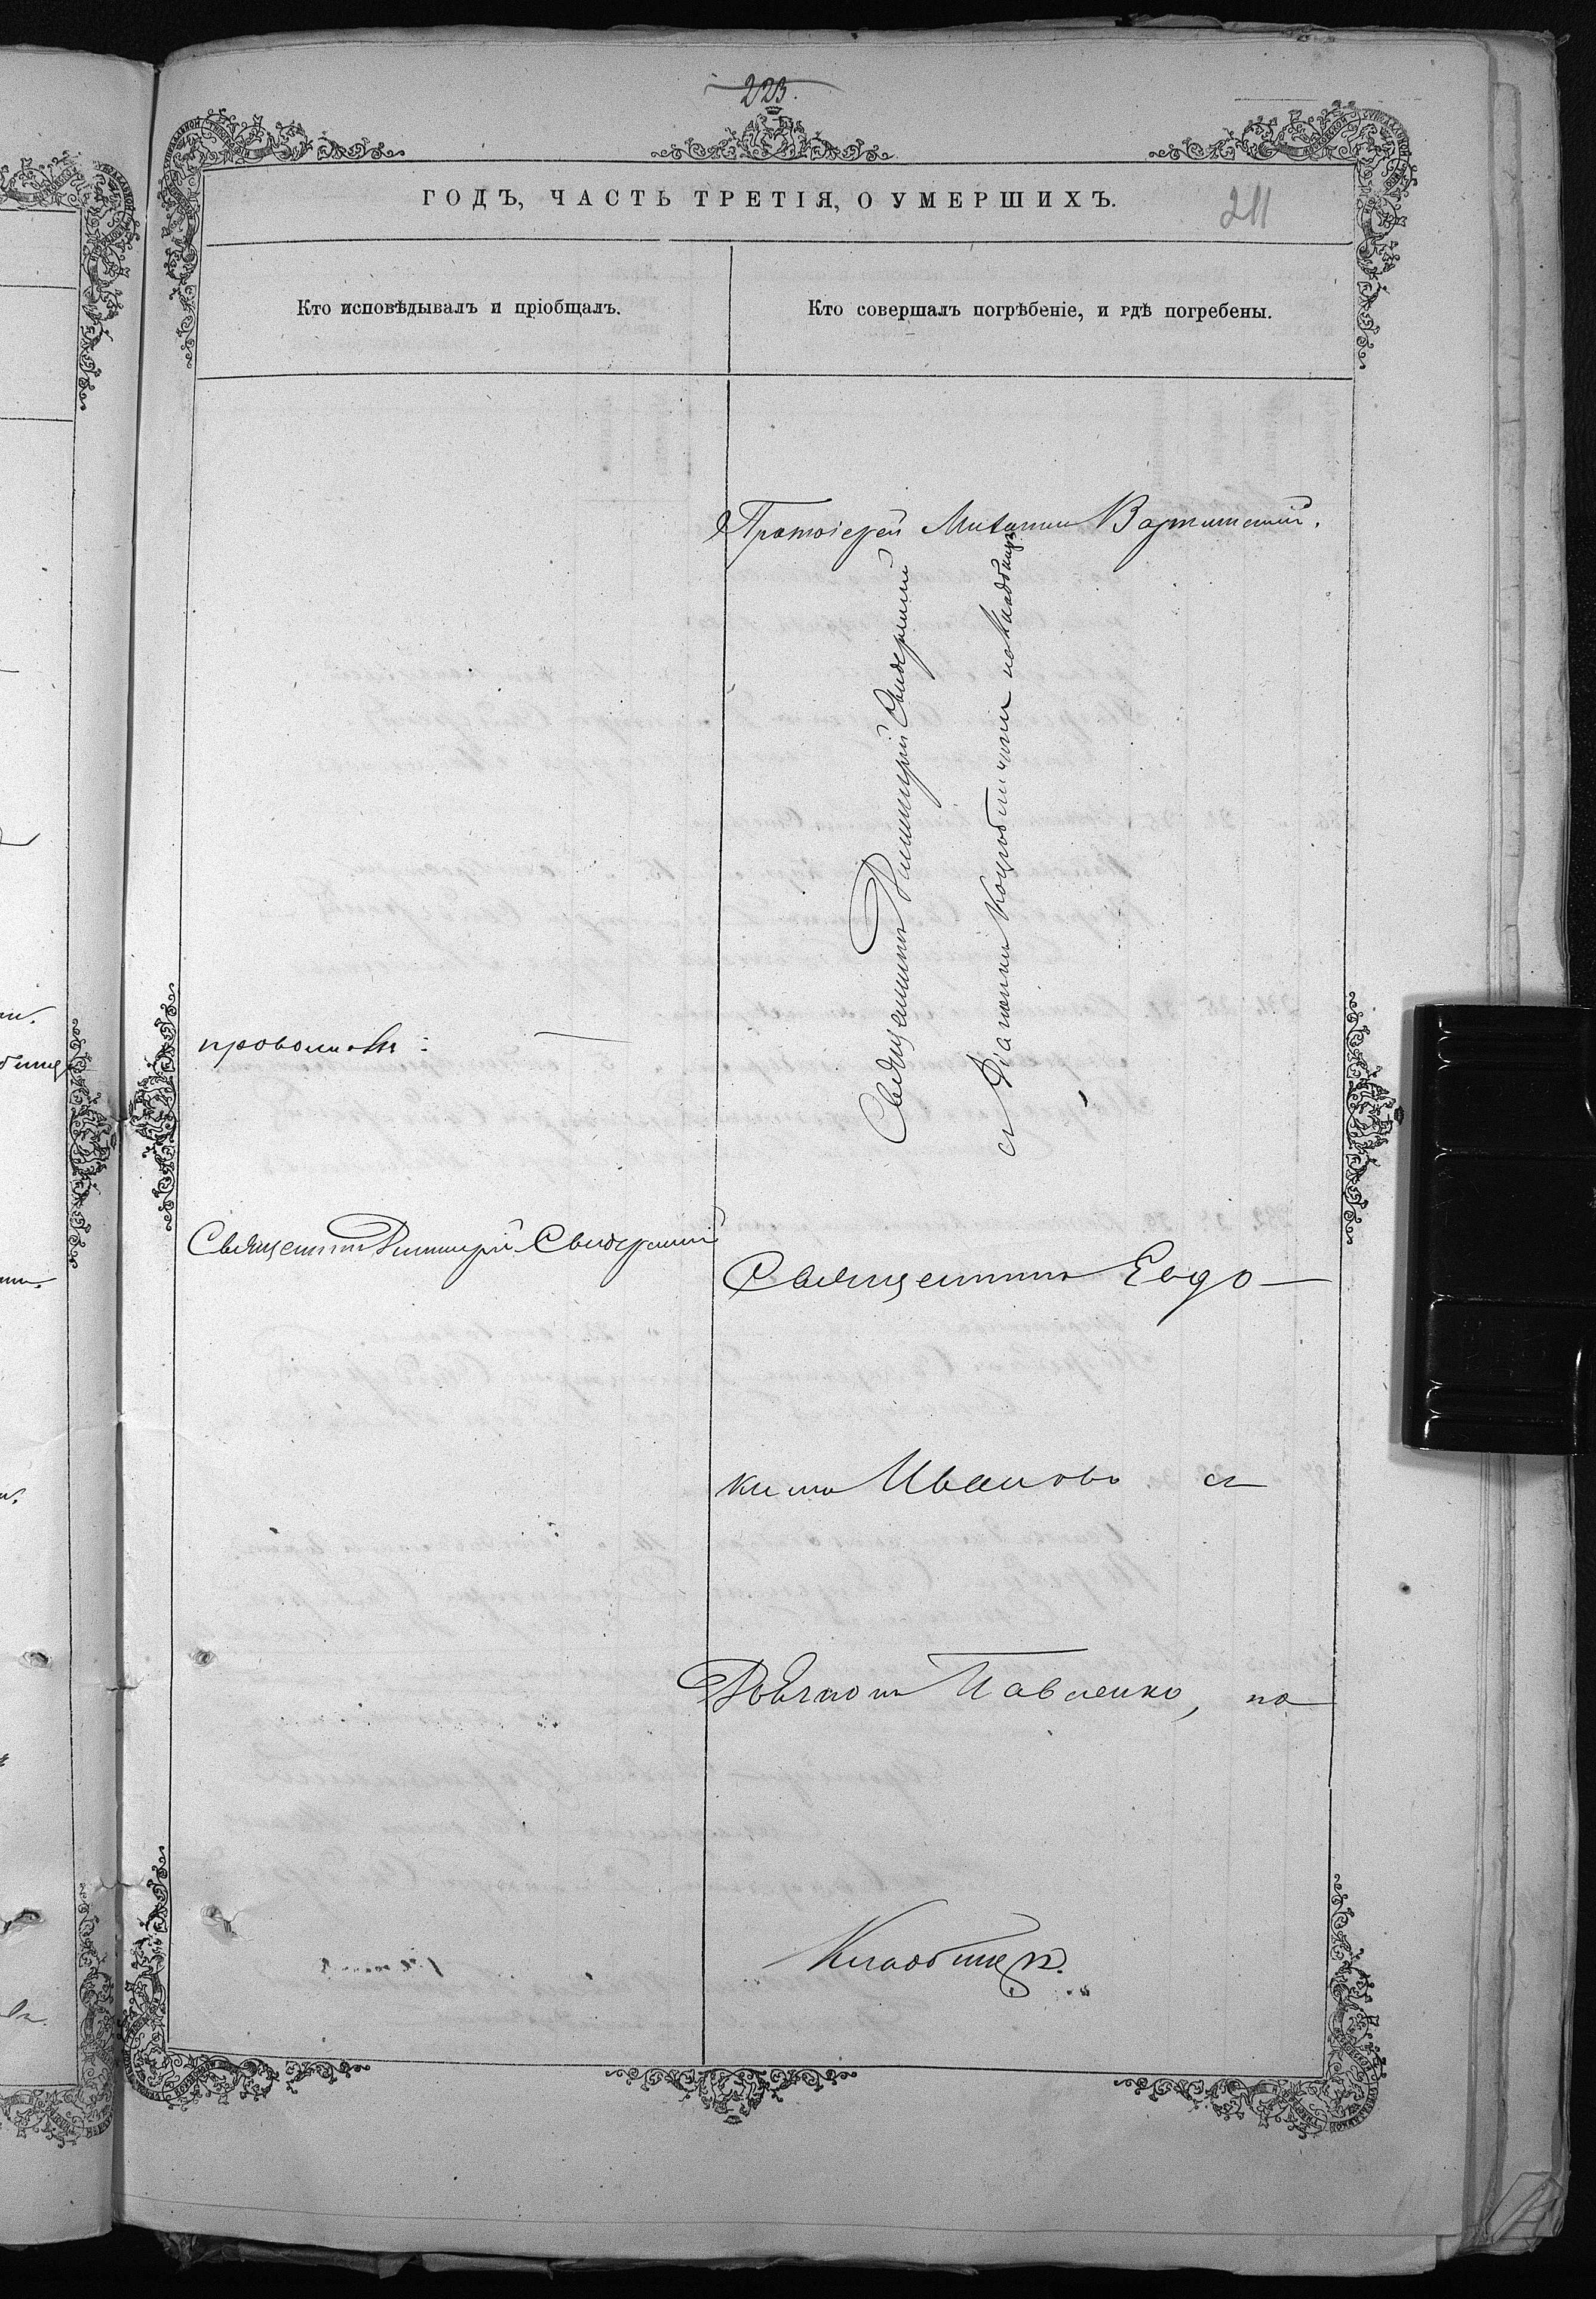 223.
ГОДЪ, ЧАСТЬ ТРЕТІЯ, О УМЕРШИХЪ.
211
Кто исповѣдывалъ и пріобщалъ.
Кто совершалъ погрѣбеніе, и гдѣ погребены.
Протоіерей Михаилъ Вартминскій.
Священникъ Димитрій Свидерскій
съ Діакономъ на кладбищѣ
Священникъ Димитрій Свидерскій
Священникъ Евдо-
кимъ Ивановъ съ
Дьячкомъ Павленко, на
Кладбищѣ.